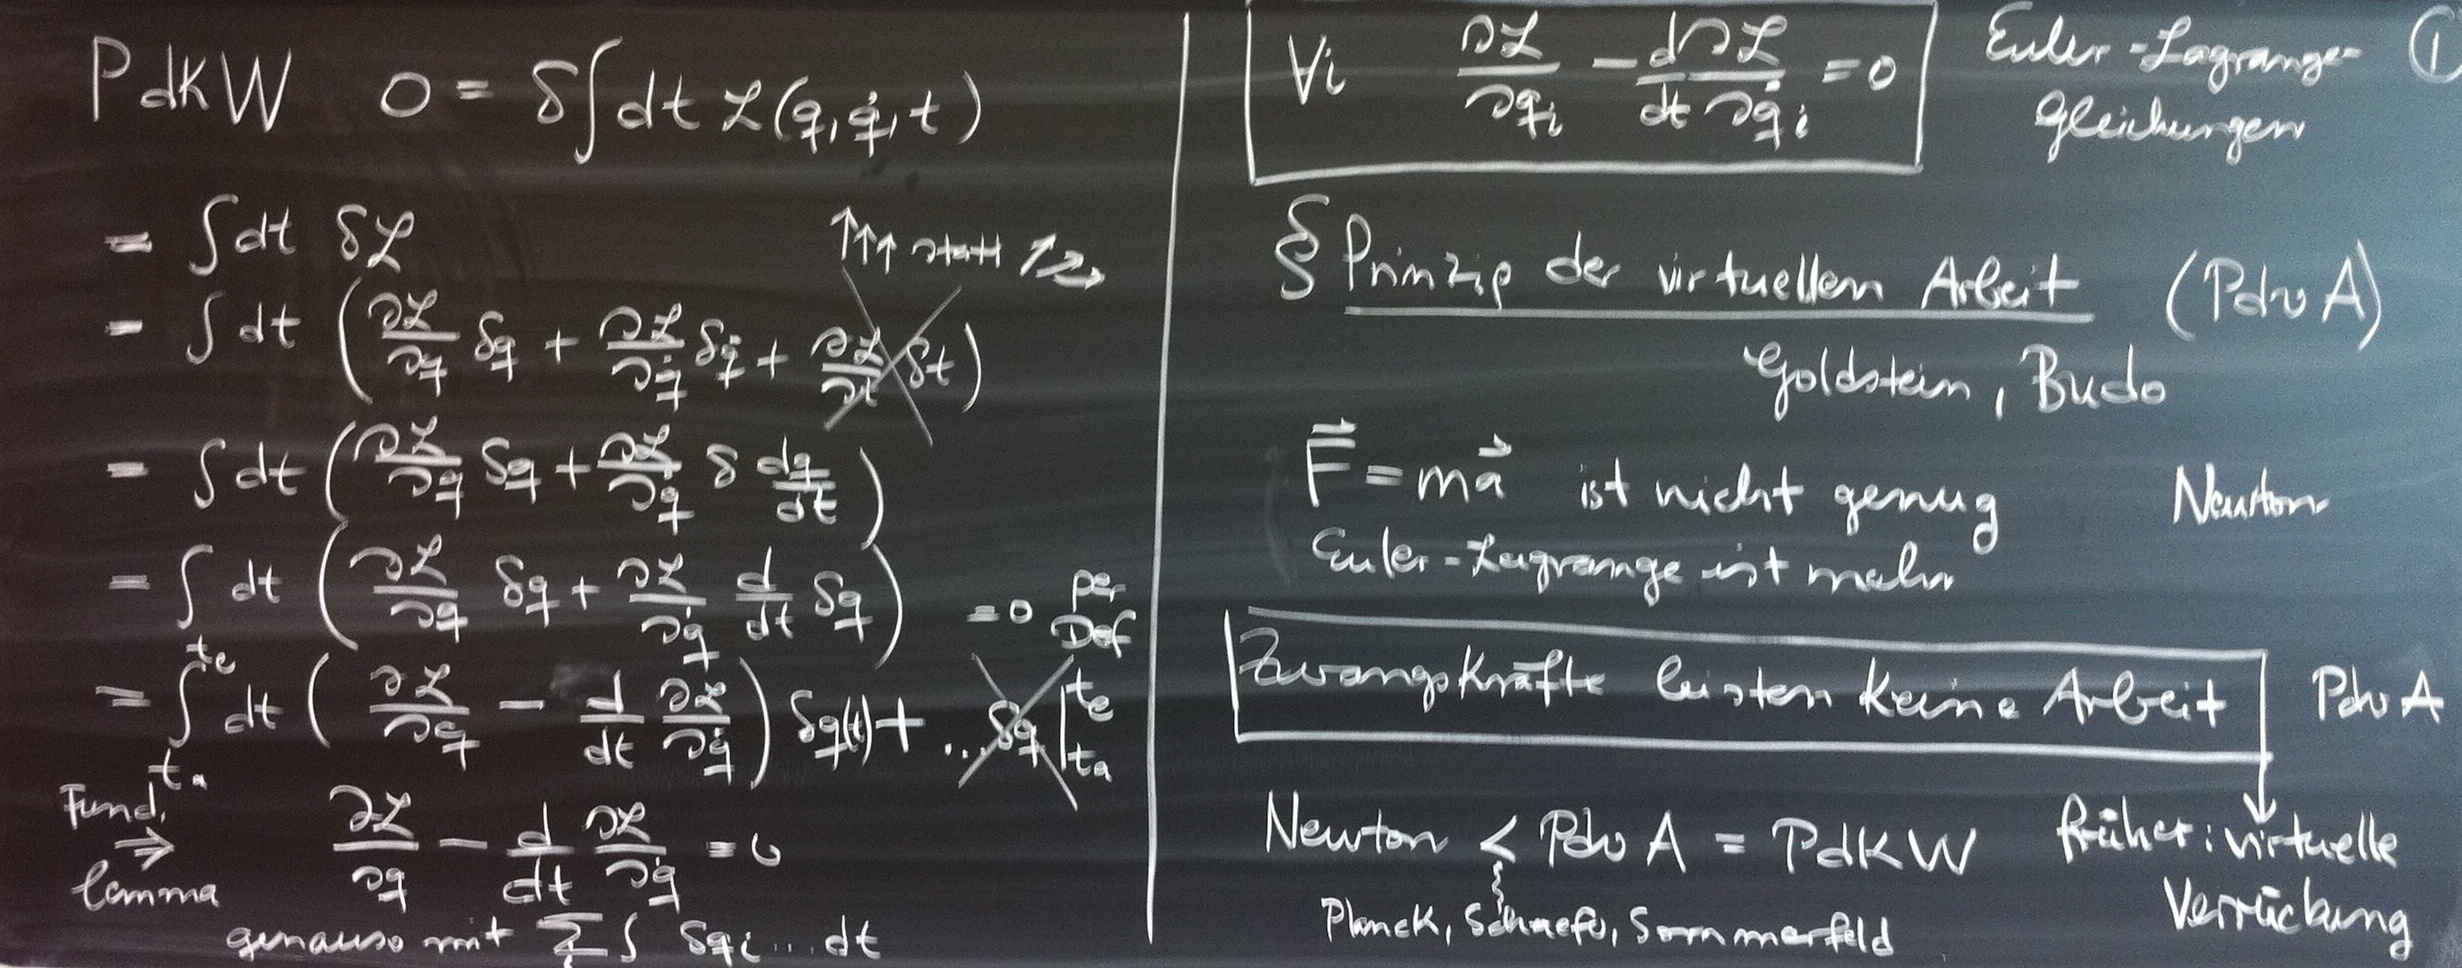 PdKW 0 = δ∫dt ℒ(q, q̇, t)
= ∫dt δℒ
↑↑↑ statt
= ∫dt (∂ℒ/∂q δq + ∂ℒ/∂q̇ δq̇ + ∂ℒ/∂t δt)
= ∫dt (∂ℒ/∂q δq + ∂ℒ/∂q̇ δ dq/dt)
= ∫dt (∂ℒ/∂q δq + ∂ℒ/∂q̇ d/dt δq)
= 0 per Def
= ∫_{ta}^{te} dt (∂ℒ/∂q − d/dt ∂ℒ/∂q̇) δq(t) + ... δq |_{ta}^{te}
Fund. ⇒ lemma ∂ℒ/∂q − d/dt ∂ℒ/∂q̇ = 0
genauso mit Σ_i ∫ δqi ... dt
∀i ∂ℒ/∂qi − d/dt ∂ℒ/∂q̇i = 0
Euler-Lagrange-
Gleichungen
①
§ Prinzip der virtuellen Arbeit (PdvA)
Goldstein, Budo
F⃗ = ma⃗ ist nicht genug Newton
Euler-Lagrange ist mehr
Zwangskräfte leisten keine Arbeit PdvA
Newton < PdvA = PdKW
früher: virtuelle
Verrückung
Planck, Schaefer, Sommerfeld